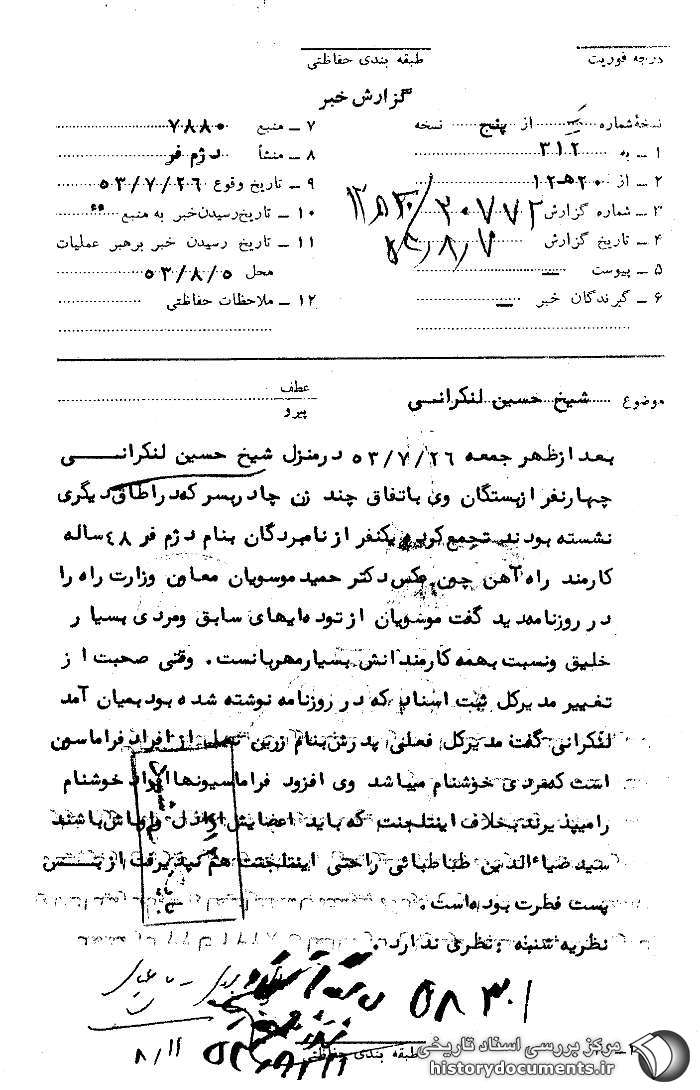 درجه فوریت
طبقه بندی حفاظتی
گزارش خبر
نسخهٔ شماره یک از پنج نسخه
۱ ـ به ۳۱۲
۲ ـ از ۲۰ ه‍ ۱۲
۳ ـ شماره گزارش ۲۰۷۷۲
۴ ـ تاریخ گزارش ۵۳/۸/۷
۵ ـ پیوست —
۶ ـ گیرندگان خبر —
۷ ـ منبع ۷۸۸۰
۸ ـ منشأ دژم فر
۹ ـ تاریخ وقوع ۵۳/۷/۲۶
۱۰ ـ تاریخ رسیدن خبر به منبع
۱۱ ـ تاریخ رسیدن خبر برهبر عملیات
محل ۵۳/۸/۵
۱۲ ـ ملاحظات حفاظتی
موضوع شیخ حسین لنکرانی
عطف
پیرو
بعد از ظهر جمعه ۵۳/۷/۲۶ در منزل شیخ حسین لنکرانی
چهار نفر از بستگان وی باتفاق چند زن چادر بسر که در اطاق دیگری
نشسته بودند تجمع کرده یکنفر از نامبردگان بنام دژم فر ۴۸ ساله
کارمند راه آهن چون عکس دکتر حمید موسویان معاون وزارت راه را
در روزنامه دید گفت موسویان از توده ایهای سابق و مردی بسیار
خلیق و نسبت بهمه کارمندانش بسیار مهربانست . وقتی صحبت از
تغییر مدیرکل ثبت اسناد که در روزنامه نوشته شده بود بمیان آمد
لنکرانی گفت مدیرکل فعلی پدرش بنام زرین از افراد فراماسون
است که مردی خوشنام میباشد وی افزود فراماسیونها افراد خوشنام
را میپذیرند بخلاف اینتلجنت که باید اعضایش اراذل و اوباش باشند
سید ضیاءالدین طباطبائی را حتی اینتلجنت هم نپذیرفت از بس
پست فطرت بوده است .
نظریه شنبه : نظری ندارد .
۵۸۳۰۱
۸/۱۱
طبقه بندی حفاظتی
مرکز بررسی اسناد تاریخی
historydocuments.ir